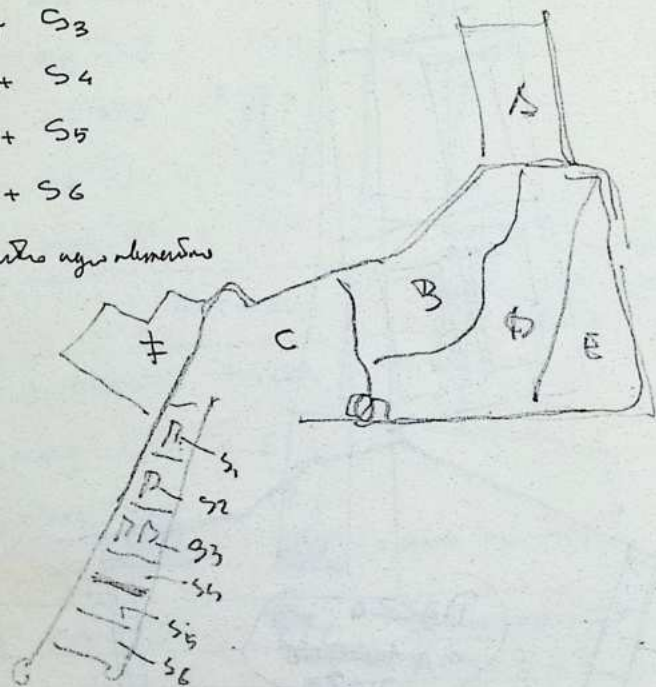 S3
+ S4
+ S5
+ S6
A
B
C
D
E
F
S1
S2
S3
S4
S5
S6